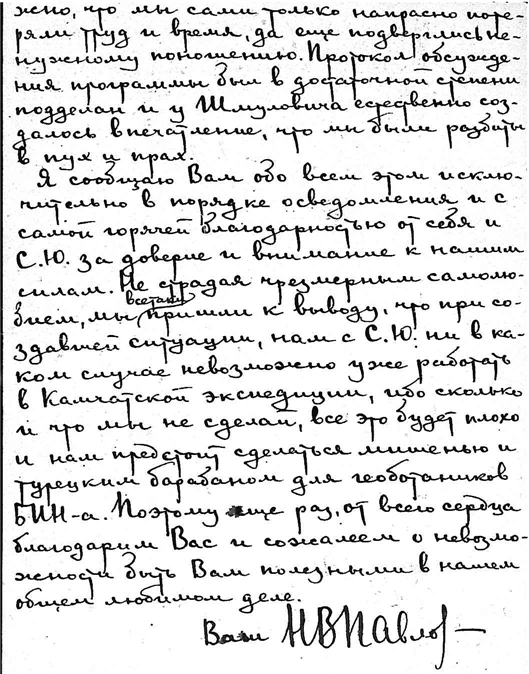 жно, что мы сами только напрасно поте-
ряли труд и время, да еще подверглись не-
нужному поношению. Протокол обсужде-
ния программы был в достаточной степени
подделан и у Шмуловича естественно соз-
далось впечатление, что мы были разбиты
в пух и прах.
Я сообщаю Вам обо всем этом исклю-
чительно в порядке осведомления и с
самой горячей благодарностью от себя и
С.Ю. за доверие и внимание к нашим
силам. Не страдая чрезмерным самолю-
всетаки
бием, мы пришли к выводу, что при со-
здавшей ситуации, нам с С.Ю. ни в ка-
ком случае невозможно уже работать
в Камчатской экспедиции, ибо сколько
и что мы не сделай, все это будет плохо
и нам предстоит сделаться мишенью и
турецким барабаном для геоботаников
БИН-а. Поэтому еще раз, от всего сердца
благодарим Вас и сожалеем о невозмо-
жности быть Вам полезными в нашем
общем любимом деле.
Ваш НВПавлов